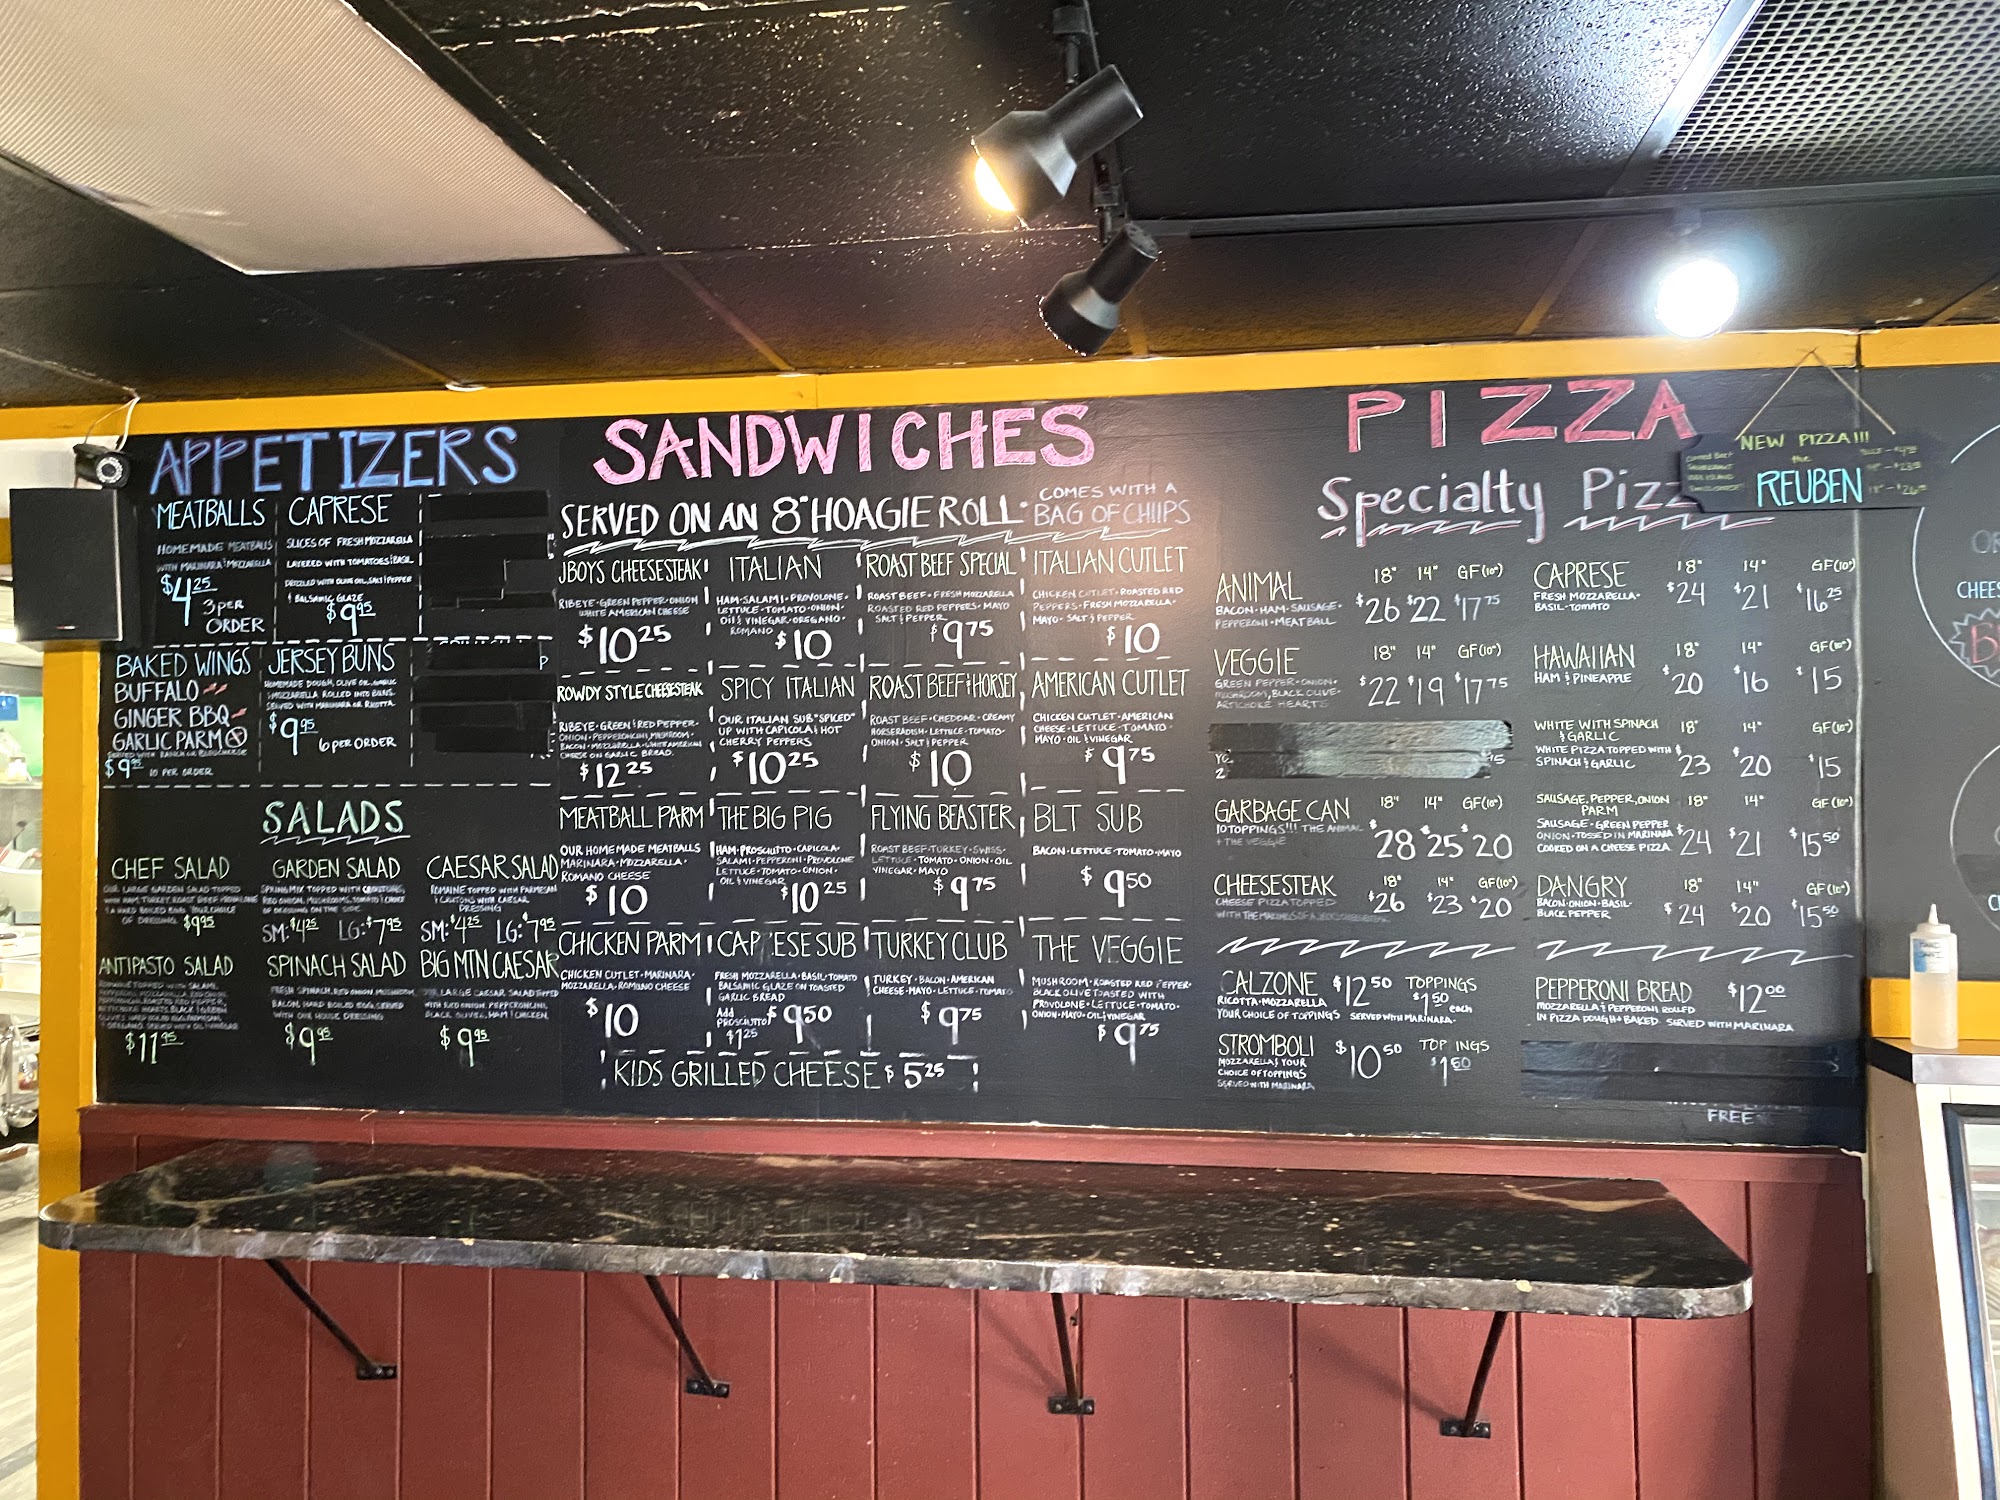 APPETIZERS
MEATBALLS
HOMEMADE MEATBALLS
WITH MARINARA & MOZZARELLA
$4.25
3 PER
ORDER
CAPRESE
SLICES OF FRESH MOZZARELLA
LAYERED WITH TOMATOES & BASIL
DRIZZLED WITH OLIVE OIL, SALT & PEPPER
& BALSAMIC GLAZE
$9.95
BAKED WINGS
BUFFALO
GINGER BBQ
GARLIC PARM
SERVED WITH RANCH OR BLEUCHEESE
$9.95 10 PER ORDER
JERSEY BUNS
HOMEMADE DOUGH, OLIVE OIL, GARLIC
& MOZZARELLA ROLLED INTO BUNS.
SERVED WITH MARINARA OR RICOTTA.
$9.95
6 PER ORDER
P
SALADS
CHEF SALAD
OUR LARGE GARDEN SALAD TOPPED
WITH HAM, TURKEY, ROAST BEEF, PROVOLONE
& A HARD BOILED EGG. YOUR CHOICE
OF DRESSING. $9.95
GARDEN SALAD
SPRING MIX TOPPED WITH CROUTONS,
RED ONION, MUSHROOMS, TOMATO & CHOICE
OF DRESSING ON THE SIDE
SM: $4.25 LG: $7.95
CAESAR SALAD
ROMAINE TOPPED WITH PARMESAN
& CRUTONS WITH CAESAR
DRESSING
SM: $4.25 LG: $7.95
ANTIPASTO SALAD
ROMAINE TOPPED WITH SALAMI,
$11.95
SPINACH SALAD
FRESH SPINACH, RED ONION, MUSHROOM,
BACON, HARD BOILED EGG. SERVED
WITH OUR HOUSE DRESSING
$9.95
BIG MTN CAESAR
LARGE CAESAR SALAD TOPPED
WITH RED ONION, PEPPERONCINI,
BLACK OLIVES, HAM & CHICKEN
$9.95
SANDWICHES
SERVED ON AN 8" HOAGIE ROLL·
COMES WITH A
BAG OF CHIIPS
JBOYS CHEESESTEAK
RIBEYE·GREEN PEPPER·ONION
WHITE AMERICAN CHEESE
$10.25
ITALIAN
HAM·SALAMI·PROVOLONE·
LETTUCE·TOMATO·ONION·
OIL & VINEGAR·OREGANO·
ROMANO $10
ROAST BEEF SPECIAL
ROAST BEEF·FRESH MOZZARELLA
ROASTED RED PEPPERS·MAYO
SALT & PEPPER
$9.75
ITALIAN CUTLET
CHICKEN CUTLET·ROASTED RED
PEPPERS·FRESH MOZZARELLA·
MAYO·SALT & PEPPER
$10
ROWDY STYLE CHEESESTEAK
RIBEYE·GREEN & RED PEPPER·
ONION·PEPPERONCINI, MUSHROOM·
BACON·MOZZARELLA·WHITE AMERICAN
CHEESE ON GARLIC BREAD.
$12.25
SPICY ITALIAN
OUR ITALIAN SUB "SPICED"
UP WITH CAPICOLA & HOT
CHERRY PEPPERS
$10.25
ROAST BEEF & HORSEY
ROAST BEEF·CHEDDAR·CREAMY
HORSERADISH·LETTUCE·TOMATO·
ONION·SALT & PEPPER
$10
AMERICAN CUTLET
CHICKEN CUTLET·AMERICAN
CHEESE·LETTUCE·TOMATO·
MAYO·OIL & VINEGAR
$9.75
MEATBALL PARM
OUR HOMEMADE MEATBALLS
MARINARA·MOZZARELLA·
ROMANO CHEESE
$10
THE BIG PIG
HAM·PROSCIUTTO·CAPICOLA·
SALAMI·PEPPERONI·PROVOLONE
LETTUCE·TOMATO·ONION·
OIL & VINEGAR
$10.25
FLYING BEASTER
ROAST BEEF·TURKEY·SWISS·
LETTUCE·TOMATO·ONION·OIL
VINEGAR·MAYO
$9.75
BLT SUB
BACON·LETTUCE·TOMATO·MAYO
$9.50
CHICKEN PARM
CHICKEN CUTLET·MARINARA·
MOZZARELLA·ROMANO CHEESE
$10
CAP ESE SUB
FRESH MOZZARELLA·BASIL·TOMATO
BALSAMIC GLAZE ON TOASTED
GARLIC BREAD
Add
PROSCIUTTO
$1.25
$9.50
TURKEY CLUB
TURKEY·BACON·AMERICAN
CHEESE·MAYO·LETTUCE·TOMATO
$9.75
THE VEGGIE
MUSHROOM·ROASTED RED PEPPER·
BLACK OLIVE TOASTED WITH
PROVOLONE·LETTUCE·TOMATO·
ONION·MAYO·OIL & VINEGAR
$9.75
KIDS GRILLED CHEESE $5.25
PIZZA
Specialty Pizz
NEW PIZZA!!!
the
REUBEN
ANIMAL 18" 14" GF(10")
BACON·HAM·SAUSAGE·
PEPPERONI·MEATBALL
$26 $22 $17.75
VEGGIE 18" 14" GF(10")
GREEN PEPPER·ONION·
MUSHROOM, BLACK OLIVE·
ARTICHOKE HEARTS
$22 $19 $17.75
GARBAGE CAN 18" 14" GF(10")
10 TOPPINGS!!! THE ANIMAL
+ THE VEGGIE
$28 $25 $20
CHEESESTEAK 18" 14" GF(10")
CHEESE PIZZA TOPPED
WITH THE MAKINGS OF A JBOYS CHEESESTEAK
$26 $23 $20
CAPRESE 18" 14" GF(10")
FRESH MOZZARELLA·
BASIL·TOMATO
$24 $21 $16.25
HAWAIIAN 18" 14" GF(10")
HAM & PINEAPPLE
$20 $16 $15
WHITE WITH SPINACH
& GARLIC 18" 14" GF(10")
WHITE PIZZA TOPPED WITH
SPINACH & GARLIC
$23 $20 $15
SAUSAGE, PEPPER, ONION
PARM 18" 14" GF(10")
SAUSAGE·GREEN PEPPER
ONION·TOSSED IN MARINARA
COOKED ON A CHEESE PIZZA
$24 $21 $15.50
DANGRY 18" 14" GF(10")
BACON·ONION·BASIL·
BLACK PEPPER
$24 $20 $15.50
CALZONE $12.50
RICOTTA·MOZZARELLA
YOUR CHOICE OF TOPPINGS SERVED WITH MARINARA·
TOPPINGS
$1.50
each
STROMBOLI $10.50
MOZZARELLA & YOUR
CHOICE OF TOPPINGS
SERVED WITH MARINARA
TOP INGS
$1.50
PEPPERONI BREAD $12.00
MOZZARELLA & PEPPERONI ROLLED
IN PIZZA DOUGH + BAKED SERVED WITH MARINARA
FREE